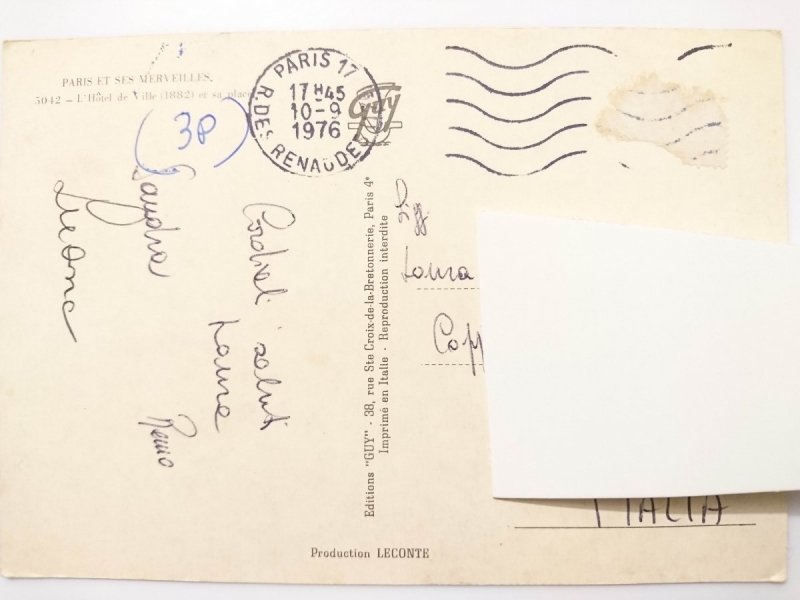 PARIS ET SES MERVEILLES.
5042 - L'Hôtel de Ville (1882) et sa place
(3P)
PARIS 17
17H45
10-9
1976
R. DES RENAUDES
GUY
Cordiali saluti
Remo
Editions "GUY" - 38, rue Ste Croix-de-la-Bretonnerie, Paris 4e
Imprimé en Italie - Reproduction interdite
Copp
ITALIA
Production LECONTE